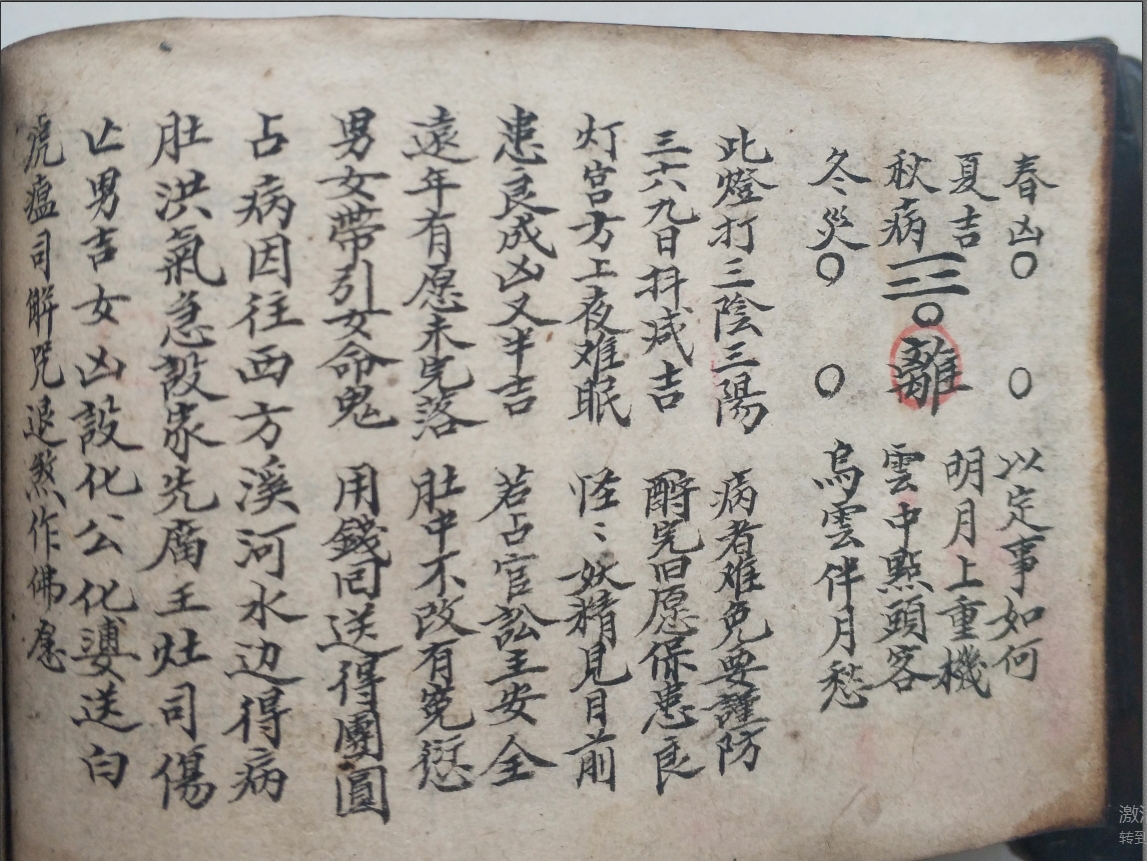 春凶〇 〇 以定事如何
夏吉 明月上重機
秋病三〇離 雲中點頭客
冬災〇 〇 烏雲伴月愁
此燈打三陰三陽 病者难免要謹防
三六九日抖减吉 酧完旧愿保患良
灯宫方上夜难眠 怪〻妖精見目前
患良成凶又半吉 若占官訟主安全
遠年有愿未完落 肚中不改有冤愆
男女帶引女命鬼 用錢囘送得團圓
占病因往西方溪河水边得病
肚洪氣急設家先廟王灶司傷
亡男吉女凶設化公化婆送白
虎瘟司解咒退煞作佛愿
激
转到